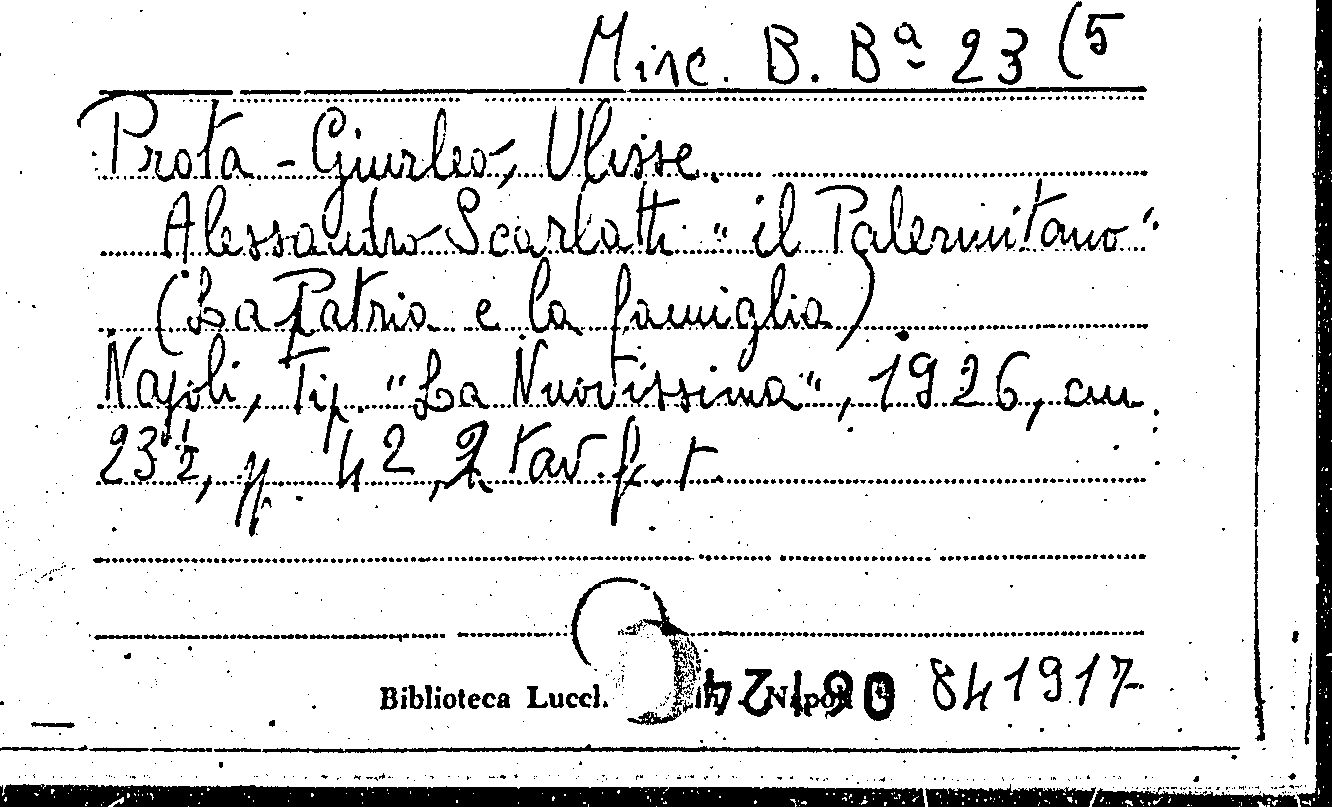 Misc. B. Bª 23 (5
Prota-Giurleo, Ulisse.
Alessandro Scarlatti "il Palermitano"
(La Patria e la famiglia)
Napoli, Tip. "La Nuovissima", 1926, cm.
23½, p. 42, 2 tav. f. t.
Biblioteca Lucch. Napoli 841917